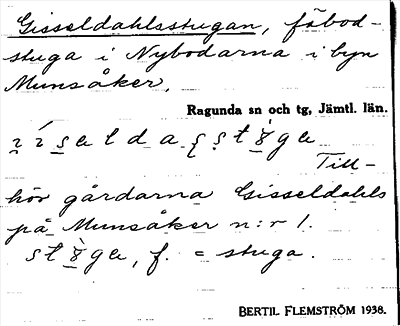 Gisseldahlsstugan, fäbod-
stuga i Nybodarna i byn
Munsåker.
Ragunda sn och tg, Jämtl. län.
Till-
hör gårdarna Gisseldahls
på Munsåker n:r 1.
f. = stuga.
BERTIL FLEMSTRÖM 1938.